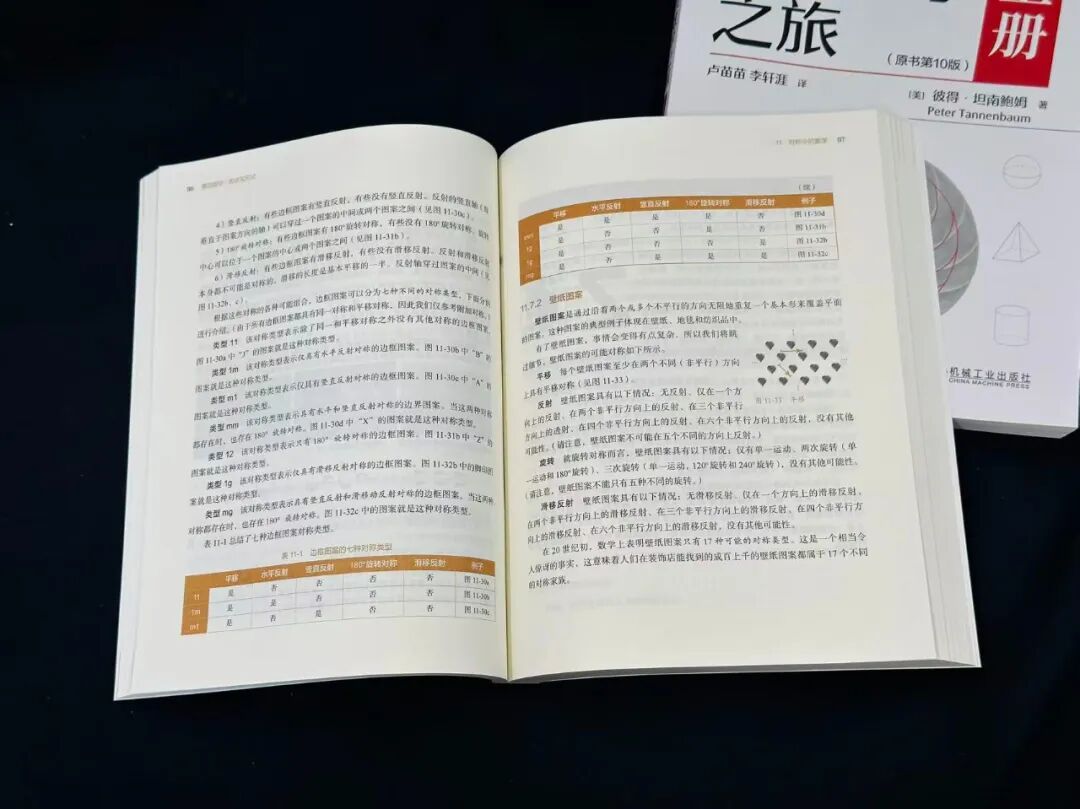 96 第四部分 形状和形式
4）竖直反射：有些边框图案有竖直反射，有些没有竖直反射。反射的竖直轴（即
垂直于图案方向的轴）可以穿过一个图案的中间或两个图案之间（见图11-30c）。
5）180°旋转对称：有些边框图案有180°旋转对称，有些没有180°旋转对称。旋转
中心可以位于一个图案的中心或两个图案之间（见图11-31b）。
6）滑移反射：有些边框图案有滑移反射，有些没有滑移反射。反射和滑移反射
本身都不可能是对称的。滑移的长度是基本平移的一半，反射轴穿过图案的中间（见
图11-32b、c）。
根据这些对称的各种可能组合，边框图案可以分为七种不同的对称类型，下面分别
进行介绍。（由于所有边框图案都具有同一对称和平移对称，因此我们仅参考附加对称。）
类型11 该对称类型表示除了同一和平移对称之外没有其他对称的边框图案。
图11-30a中“J”的图案就是这种对称类型。
类型1m 该对称类型表示仅具有水平反射对称的边框图案。图11-30b中“B”的
图案就是这种对称类型。
类型m1 该对称类型表示仅具有竖直反射对称的边框图案。图11-30c中“A”的
图案就是这种对称类型。
类型mm 该对称类型表示具有水平和竖直反射对称的边界图案。当这两种对称
都存在时，也存在180°旋转对称。图11-30d中“X”的图案就是这种对称类型。
类型12 该对称类型表示只有180°旋转对称的边框图案。图11-31b中“Z”的
图案就是这种对称类型。
类型1g 该对称类型表示仅具有滑移反射对称的边框图案。图11-32b中的脚印图
案就是这种对称类型。
类型mg 该对称类型表示具有竖直反射和滑移动反射对称的边框图案。当这两种
对称都存在时，也存在180°旋转对称。图11-32c中的图案就是这种对称类型。
表11-1总结了七种边框图案对称类型。
表11-1 边框图案的七种对称类型
平移 水平反射 竖直反射 180°旋转对称 滑移反射 例子
11 是 否 否 否 否 图11-30a
1m 是 是 否 否 否 图11-30b
m1 是 否 是 否 否 图11-30c
11 对称中的数学 97
（续）
平移 水平反射 竖直反射 180°旋转对称 滑移反射 例子
mm 是 是 是 是 否 图11-30d
12 是 否 否 是 否 图11-31b
1g 是 否 否 否 是 图11-32b
mg 是 否 是 是 是 图11-32c
11.7.2 壁纸图案
壁纸图案是通过沿着两个或多个不平行的方向无限地重复一个基本形来覆盖平面
的图案。这种图案的典型例子体现在壁纸、地毯和纺织品中。
有了壁纸图案，事情会变得有点复杂。所以我们将跳
过细节。壁纸图案的可能对称如下所示。
平移 每个壁纸图案至少在两个不同（非平行）方向
上具有平移对称（见图11-33）。
反射 壁纸图案具有以下情况：无反射、仅在一个方
向上的反射、在两个非平行方向上的反射、在三个非平行
方向上的透射、在四个非平行方向上的反射、在六个非平行方向上的反射，没有其他
可能性。（请注意，壁纸图案不可能在五个不同的方向上反射。）
图11-33 平移
旋转 就旋转对称而言，壁纸图案具有以下情况：仅有单一运动、两次旋转（单
一运动和180°旋转）、三次旋转（单一运动，120°旋转和240°旋转），没有其他可能性。
（请注意，壁纸图案不能只有五种不同的旋转。）
滑移反射 壁纸图案具有以下情况：无滑移反射、仅在一个方向上的滑移反射、
在两个非平行方向上的滑移反射、在三个非平行方向上的滑移反射、在四个非平行方
向上的滑移反射、在六个非平行方向上的滑移反射，没有其他可能性。
在20世纪初，数学上表明壁纸图案只有17种可能的对称类型。这是一个相当令
人惊讶的事实，这意味着人们在装饰店能找到的成百上千的壁纸图案都属于17个不同
的对称家族。
之旅
册
（原书第10版）
卢苗苗 李轩涯 译
[美] 彼得·坦南鲍姆 著
Peter Tannenbaum
机械工业出版社
CHINA MACHINE PRESS